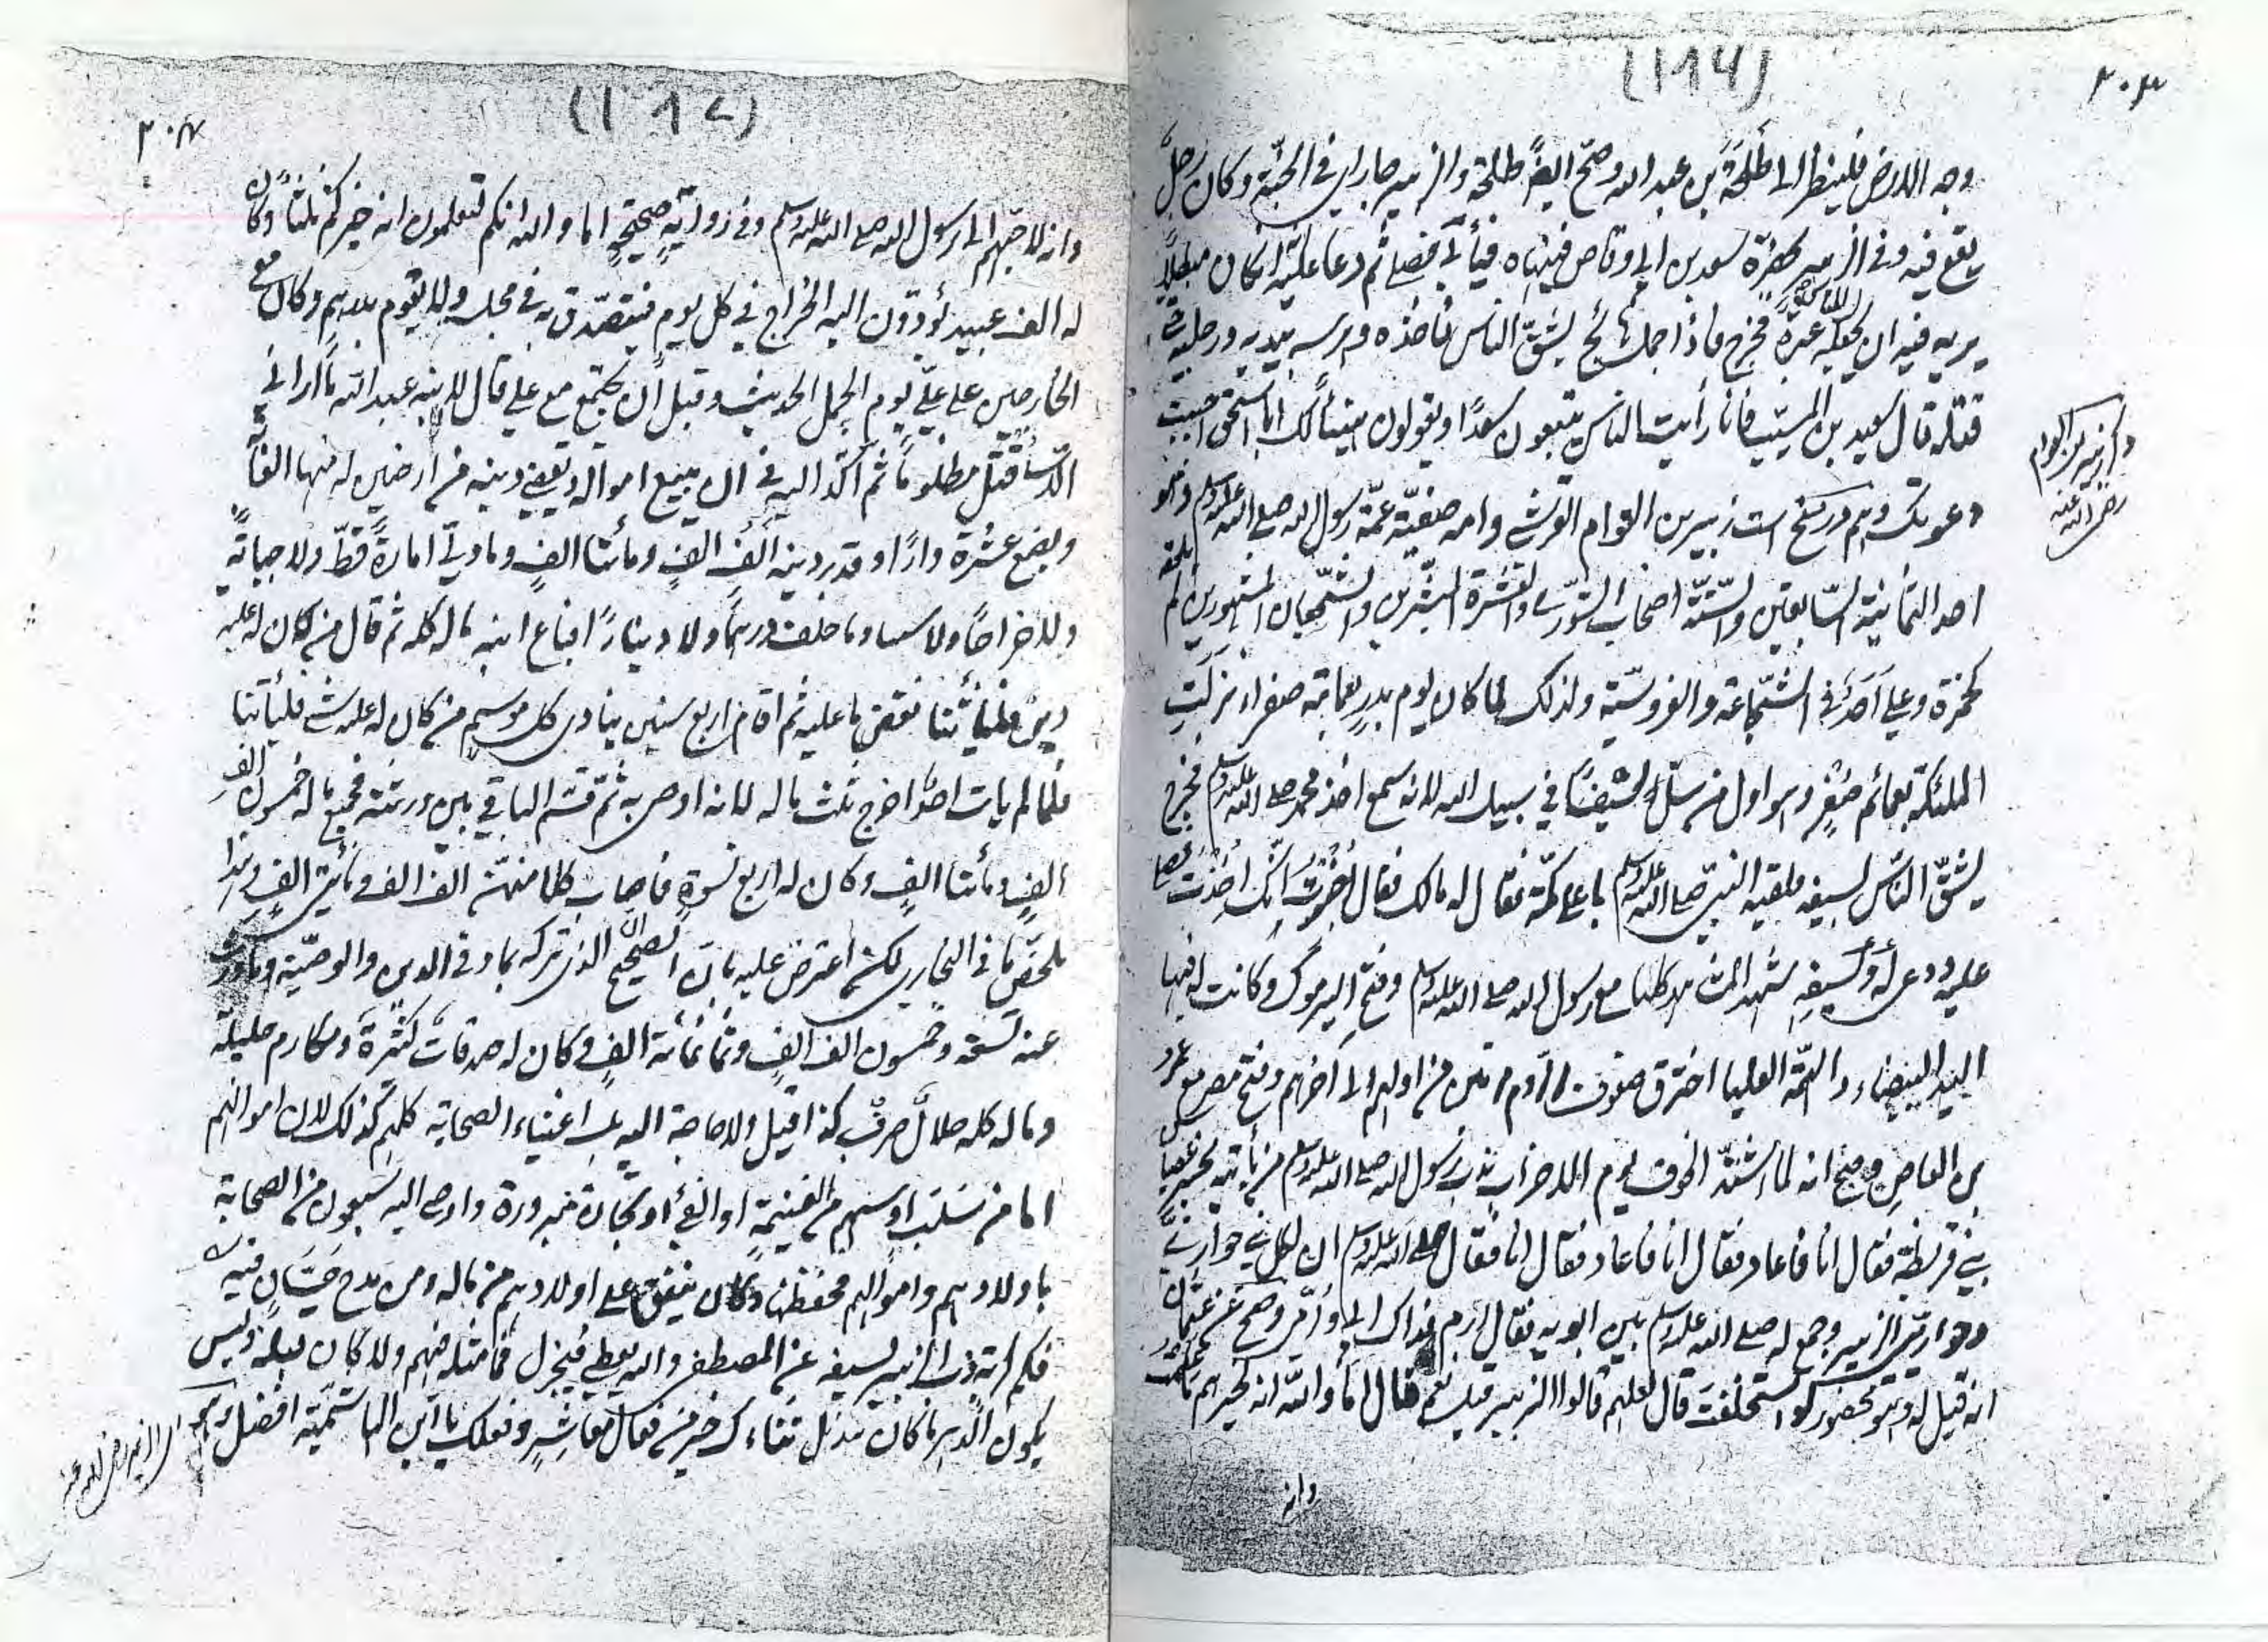 (۱۱۴)
۲۰۳
وجه الارض فلينظر الى طلحة بن عبد الله وصح ايضاً طلحة والزبير جاراى فى الجنة وكان رجل
يقع فيه وفى الزبير بحضرة سعد بن ابى وقاص فينهاه فيأبى فصلى ثم دعا عليه ان كان مبطلاً
يريه فيه آية ان يجعله للناس عبرة فخرج فاذا جمل يشق الناس فاخذه بيديه ورجليه حتى
قتله قال سعيد بن المسيب فانا رأيت الناس يتبعون سعدا ويقولون هنيئاً لك ابا اسحق اجيبت
دعوتك زبير بن العوام القرشى وامه صفية عمة رسول الله صلى الله عليه وسلم وهو
احد الثمانية السابقين والستة اصحاب الشورى والعشرة المبشرين والشجعان المشهورين لم يلحقه
كحمزة وعلى احد فى الشجاعة والفروسية ولذلك لما كان يوم بدر بعمامة صفراء نزلت
الملئكة بعمائم صفر وهو اول من سل سيفاً فى سبيل الله لانه سمع اخذ محمد صلى الله عليه وسلم فخرج
يشق الناس بسيفه فلقيه النبى صلى الله عليه وسلم باعلى مكة فقال له مالك فقال اخبرت انك اخذت فصلى
عليه ودعى له ولسيفه شهد المشاهد كلها مع رسول الله صلى الله عليه وسلم وفتح اليرموك وكانت له فيها
اليد البيضاء والهمة العليا اخترق صفوف الروم مرتين من اولهم الى آخرهم وفتح مصر مع عمرو
بن العاص وصح انه لما اشتد الخوف يوم الاحزاب ندب رسول الله صلى الله عليه وسلم من يأتيه بخبر
بنى قريظة فقال انا فاعاد فقال انا فاعاد فقال انا فقال صلى الله عليه وسلم ان لكل نبى حوارى
وحوارى الزبير وجمع له صلى الله عليه وسلم بين ابويه فقال ارم فداك ابى وامى وصح عن عثمان
انه قيل له وهو محضور لو استخلفت قال لعلهم قالوا الزبير قيل نعم قال اما والله انه لخيرهم ما علمت
وانه
ذكر زبير بن العوام
رضى الله عنه
(۱۱۵)
۲۰۴
وانه لاحبهم الى رسول الله صلى الله عليه وسلم وفى رواية صحيحة اما والله انكم لتعلمون انه خيركم ثلثاً وكان
له الف عبيد يؤدون اليه الخراج فى كل يوم فيتصدق به فى مجلسه ولا يقوم بدرهم وكان مع
الخارجين على على يوم الجمل الحديث وقبل ان يجتمع مع على قال لابنه عبد الله ما ارانى
الا سأقتل مظلوماً ثم اكد اليه فى ان يبيع امواله ويقضى دينه من ارضين له منها الغابة
وبضع عشرة دارا وقدر دينه الف الف ومائتا الف وما ولى امارة قط ولا جباية
ولا خراجاً ولا وما خلف درهماً ولا ديناراً فباع ابنه ماله كله ثم قال من كان له عليه
دين فليأتنا نقضى ما عليه ثم اقام اربع سنين ينادى كل موسم من كان له عليه شئ فليأتنا
فلما لم يأت احد اخرج ثلث ماله لانه اوصى به ثم قسم الباقى بين ورثته فجميع ماله خمسون الف
الف ومائتا الف وكان له اربع نسوة فاصاب كلا منهن الف الف ومائتى الف وهذا
ملخص ما فى البخارى لكن اعترض عليه بان الصحيح ان الذى تركه بما وفى الدين والوصية وما ورث
عنه تسعة وخمسون الف الف وثمانمائة الف وكان له صدقات كثيرة ومكارم جليلة
وماله كله حلال صرف كذا قيل ولا حاجة اليه بل اغنياء الصحابة كلهم كذلك لان اموالهم
اما من سلب او سهم من الغنيمة او الفئ او تجارة مبرورة واوصى اليه سبعون من الصحابة
باولادهم واموالهم فحفظها وكان ينفق على اولادهم من ماله ومن مدح حسان فيه
فكم كربة ذب الزبير بسيفه عن المصطفى والله يعطى فيجزل فما مثله فيهم ولا كان قبله وليس
يكون الدهر ما كان يذبل ثناءك خير من فعال معاشر وفعلك يا ابن الهاشمية افضل